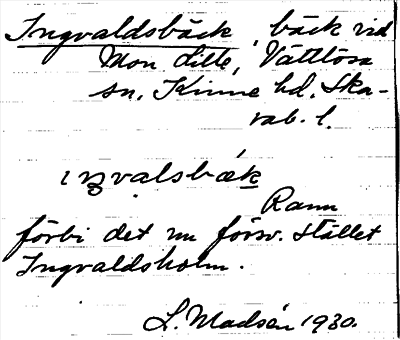 Ingvaldsbäck, bäck vid
Mon Lilla, Vättlösa
sn, Kinne hd, Ska-
rab. l.
ıŋvalsbæk
Rann
förbi det nu försv. stället
Ingvaldsholm.
L. Madsén 1930.